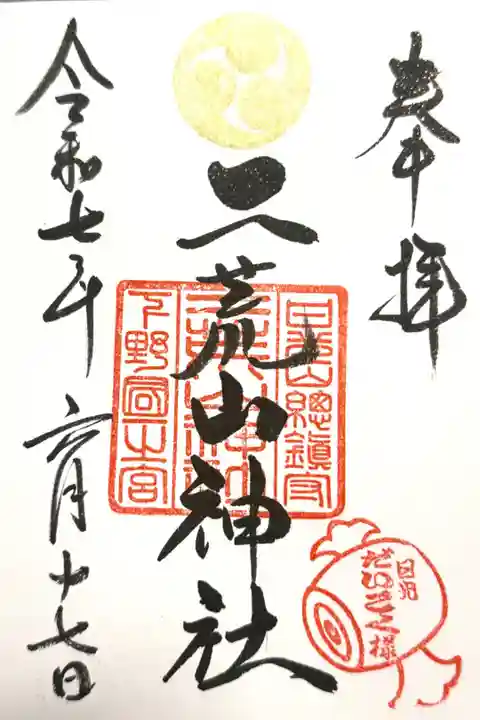 奉拝
二荒山神社
日光山總鎮守
二荒山神社
下野國一之宮
令和七年 六月十七日
日光
だいこく様